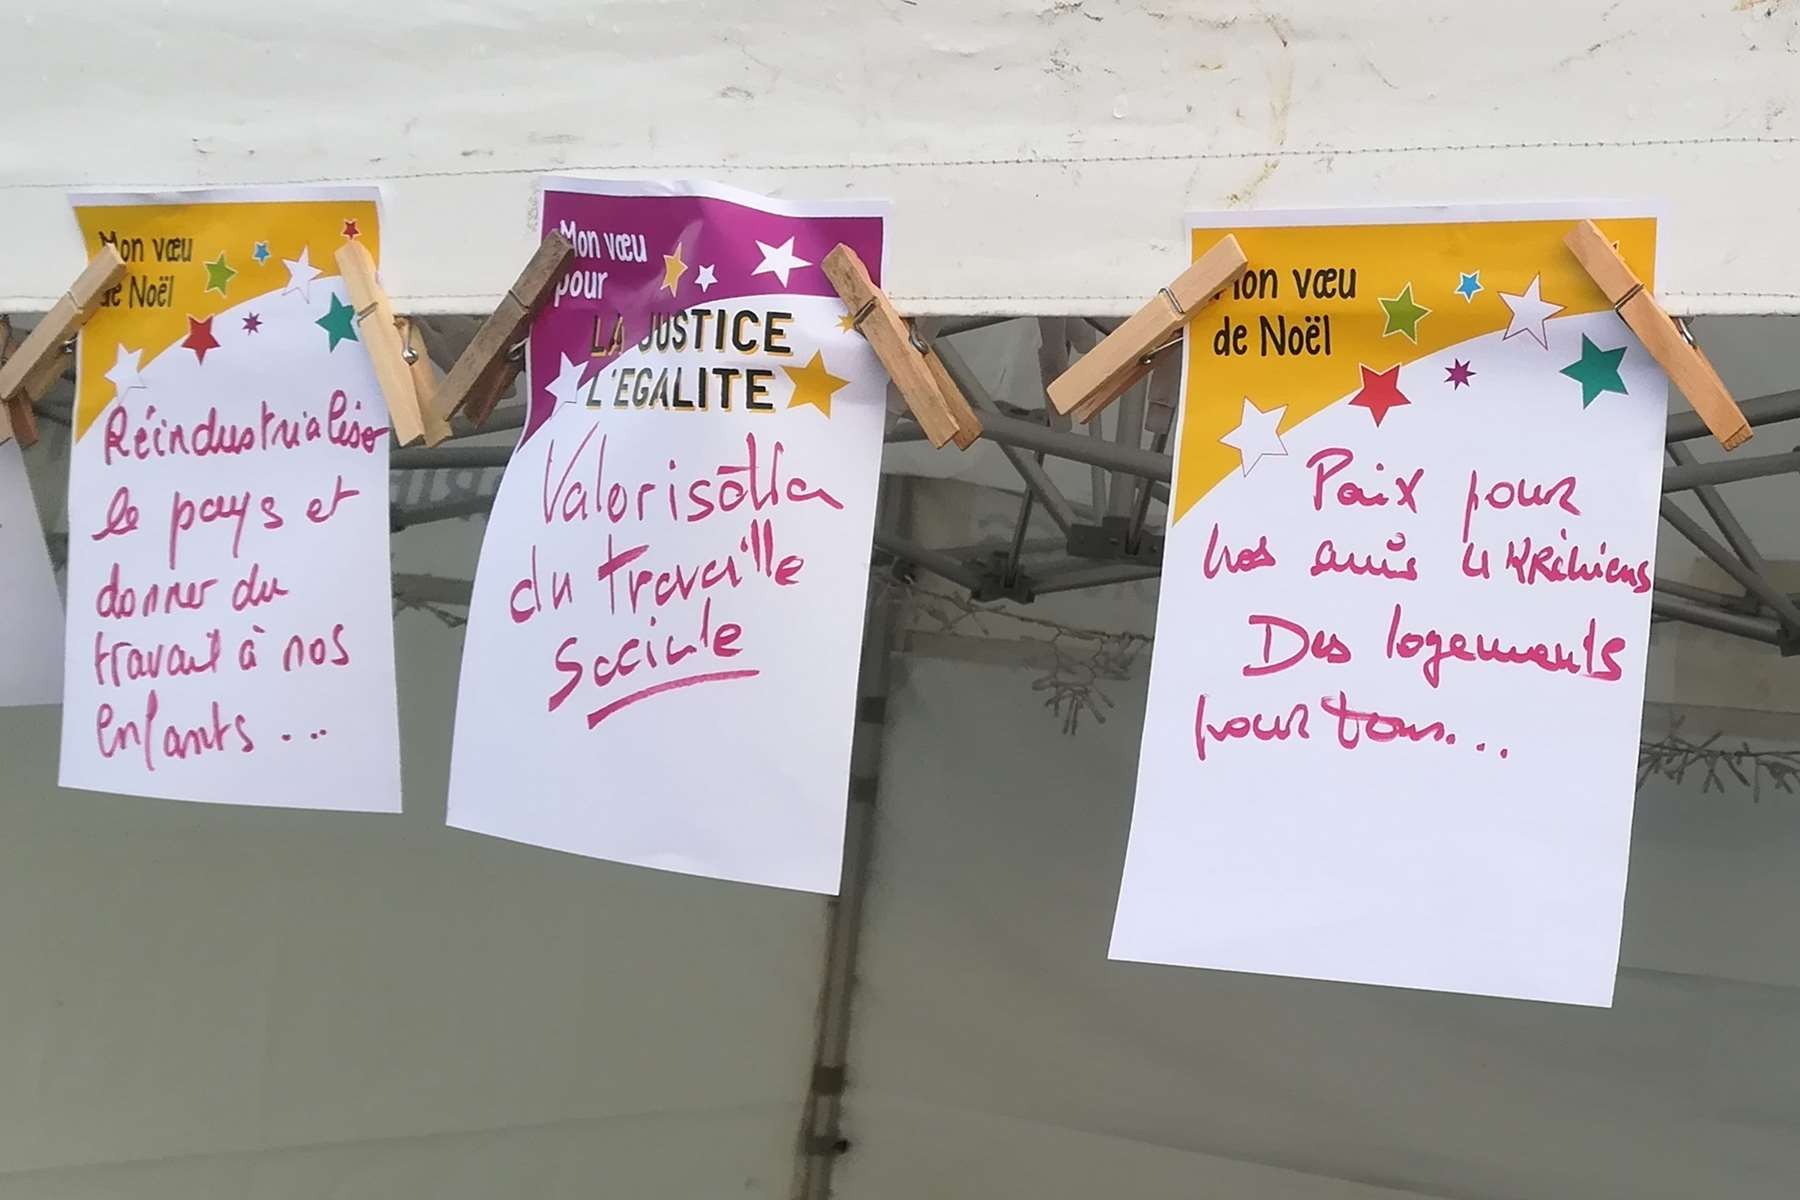 Mon vœu
de Noël
Réindustrialiser
le pays et
donner du
travail à nos
enfants...
Mon vœu
pour
LA JUSTICE
L'EGALITE
Valorisation
du travaille
Sociale
Mon vœu
de Noël
Paix pour
nos amis UKRéniens
Des logements
pour tous...